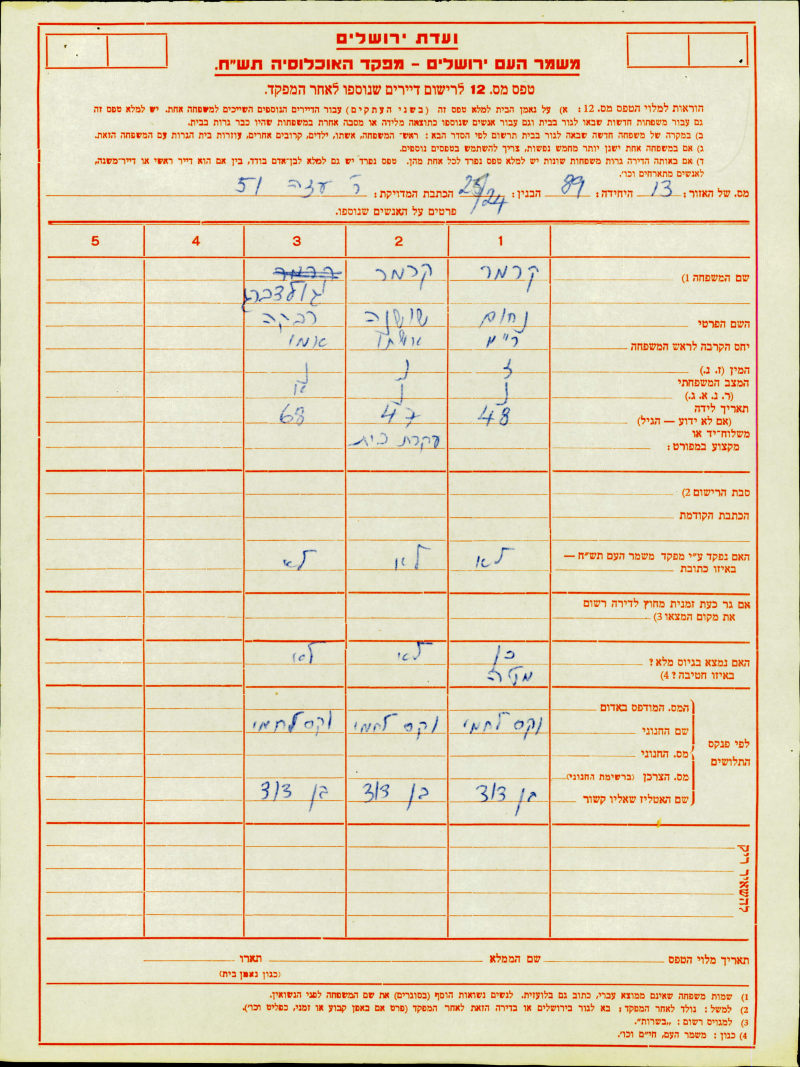 ועדת ירושלים
משמר העם ירושלים – מפקד האוכלוסיה תש"ח.
טפס מס. 12 לרישום דיירים שנוספו לאחר המפקד.
הוראות למלוי הטפס מס. 12: א) על נאמן הבית למלא טפס זה (בשני העתקים) עבור הדיירים הנוספים השייכים למשפחה אחת. יש למלא טפס זה
גם עבור משפחות חדשות שבאו לגור בבית וגם עבור אנשים שנוספו כתוצאה מלידה או מסבה אחרת במשפחות שהיו כבר גרות בבית.
ב) במקרה של משפחה חדשה שבאה לגור בבית תרשום לפי הסדר הבא: ראש־המשפחה, אשתו, ילדים, קרובים אחרים, עוזרות בית הגרות עם המשפחה הזאת.
ג) אם במשפחה אחת ישנן יותר מחמש נפשות, צריך להשתמש בטפסים נוספים.
ד) אם באותה הדירה גרות משפחות שונות יש למלא טפס נפרד לכל אחת מהן. טפס נפרד יש גם למלא לבן־אדם בודד, בין אם הוא דייר ראשי או דייר־משנה,
לאנשים מתארחים וכו'.
מס. של האזור: 13 היחידה: 89 הבנין: 25/24 הכתבת המדויקת: ר' עזה 51
פרטים על האנשים שנוספו.
1 2 3 4 5
שם המשפחה 1) קרמר קרמר קרמר
גולדברג
השם הפרטי נחום שושנה רבקה
יחס הקרבה לראש המשפחה ר"מ אשתו אמו
המין (ז. נ.) ז נ נ
המצב המשפחתי
(ר. נ. א. ג.) נ נ א
תאריך לידה
(אם לא ידוע — הגיל) 48 47 68
משלוח־יד או
מקצוע במפורט: עקרת בית
סבת הרישום 2)
הכתבת הקודמת
האם נפקד ע"י מפקד משמר העם תש"ח — לא לא לא
באיזו כתובת
אם גר כעת זמנית מחוץ לדירה רשום
את מקום המצאו 3)
האם נמצא בגיוס מלא? כן לא לא
באיזו חטיבה? 4)
לפי פנקס התלושים
המס. המודפס באדום
שם החנוני וקס לחמי וקס לחמי וקס לחמי
מס. החנוני
מס. הצרכן (ברשימת החנוני)
שם האטליז שאליו קשור בן דוד בן דוד בן דוד
להשאיר ריק
תאריך מלוי הטפס שם הממלא תארו
(כגון נאמן בית)
1) שמות משפחה שאינם ממוצא עברי, כתוב גם בלועזית. לנשים נשואות הוסף (בסוגרים) את שם המשפחה לפני הנשואין.
2) למשל: נולד לאחר המפקד: בא לגור בירושלים או בדירה הזאת לאחר המפקד (פרט אם באפן קבוע או זמני, כפליט וכו').
3) למגויס רשום: „בשרות".
4) כגון: משמר העם, חי"ם וכו'.